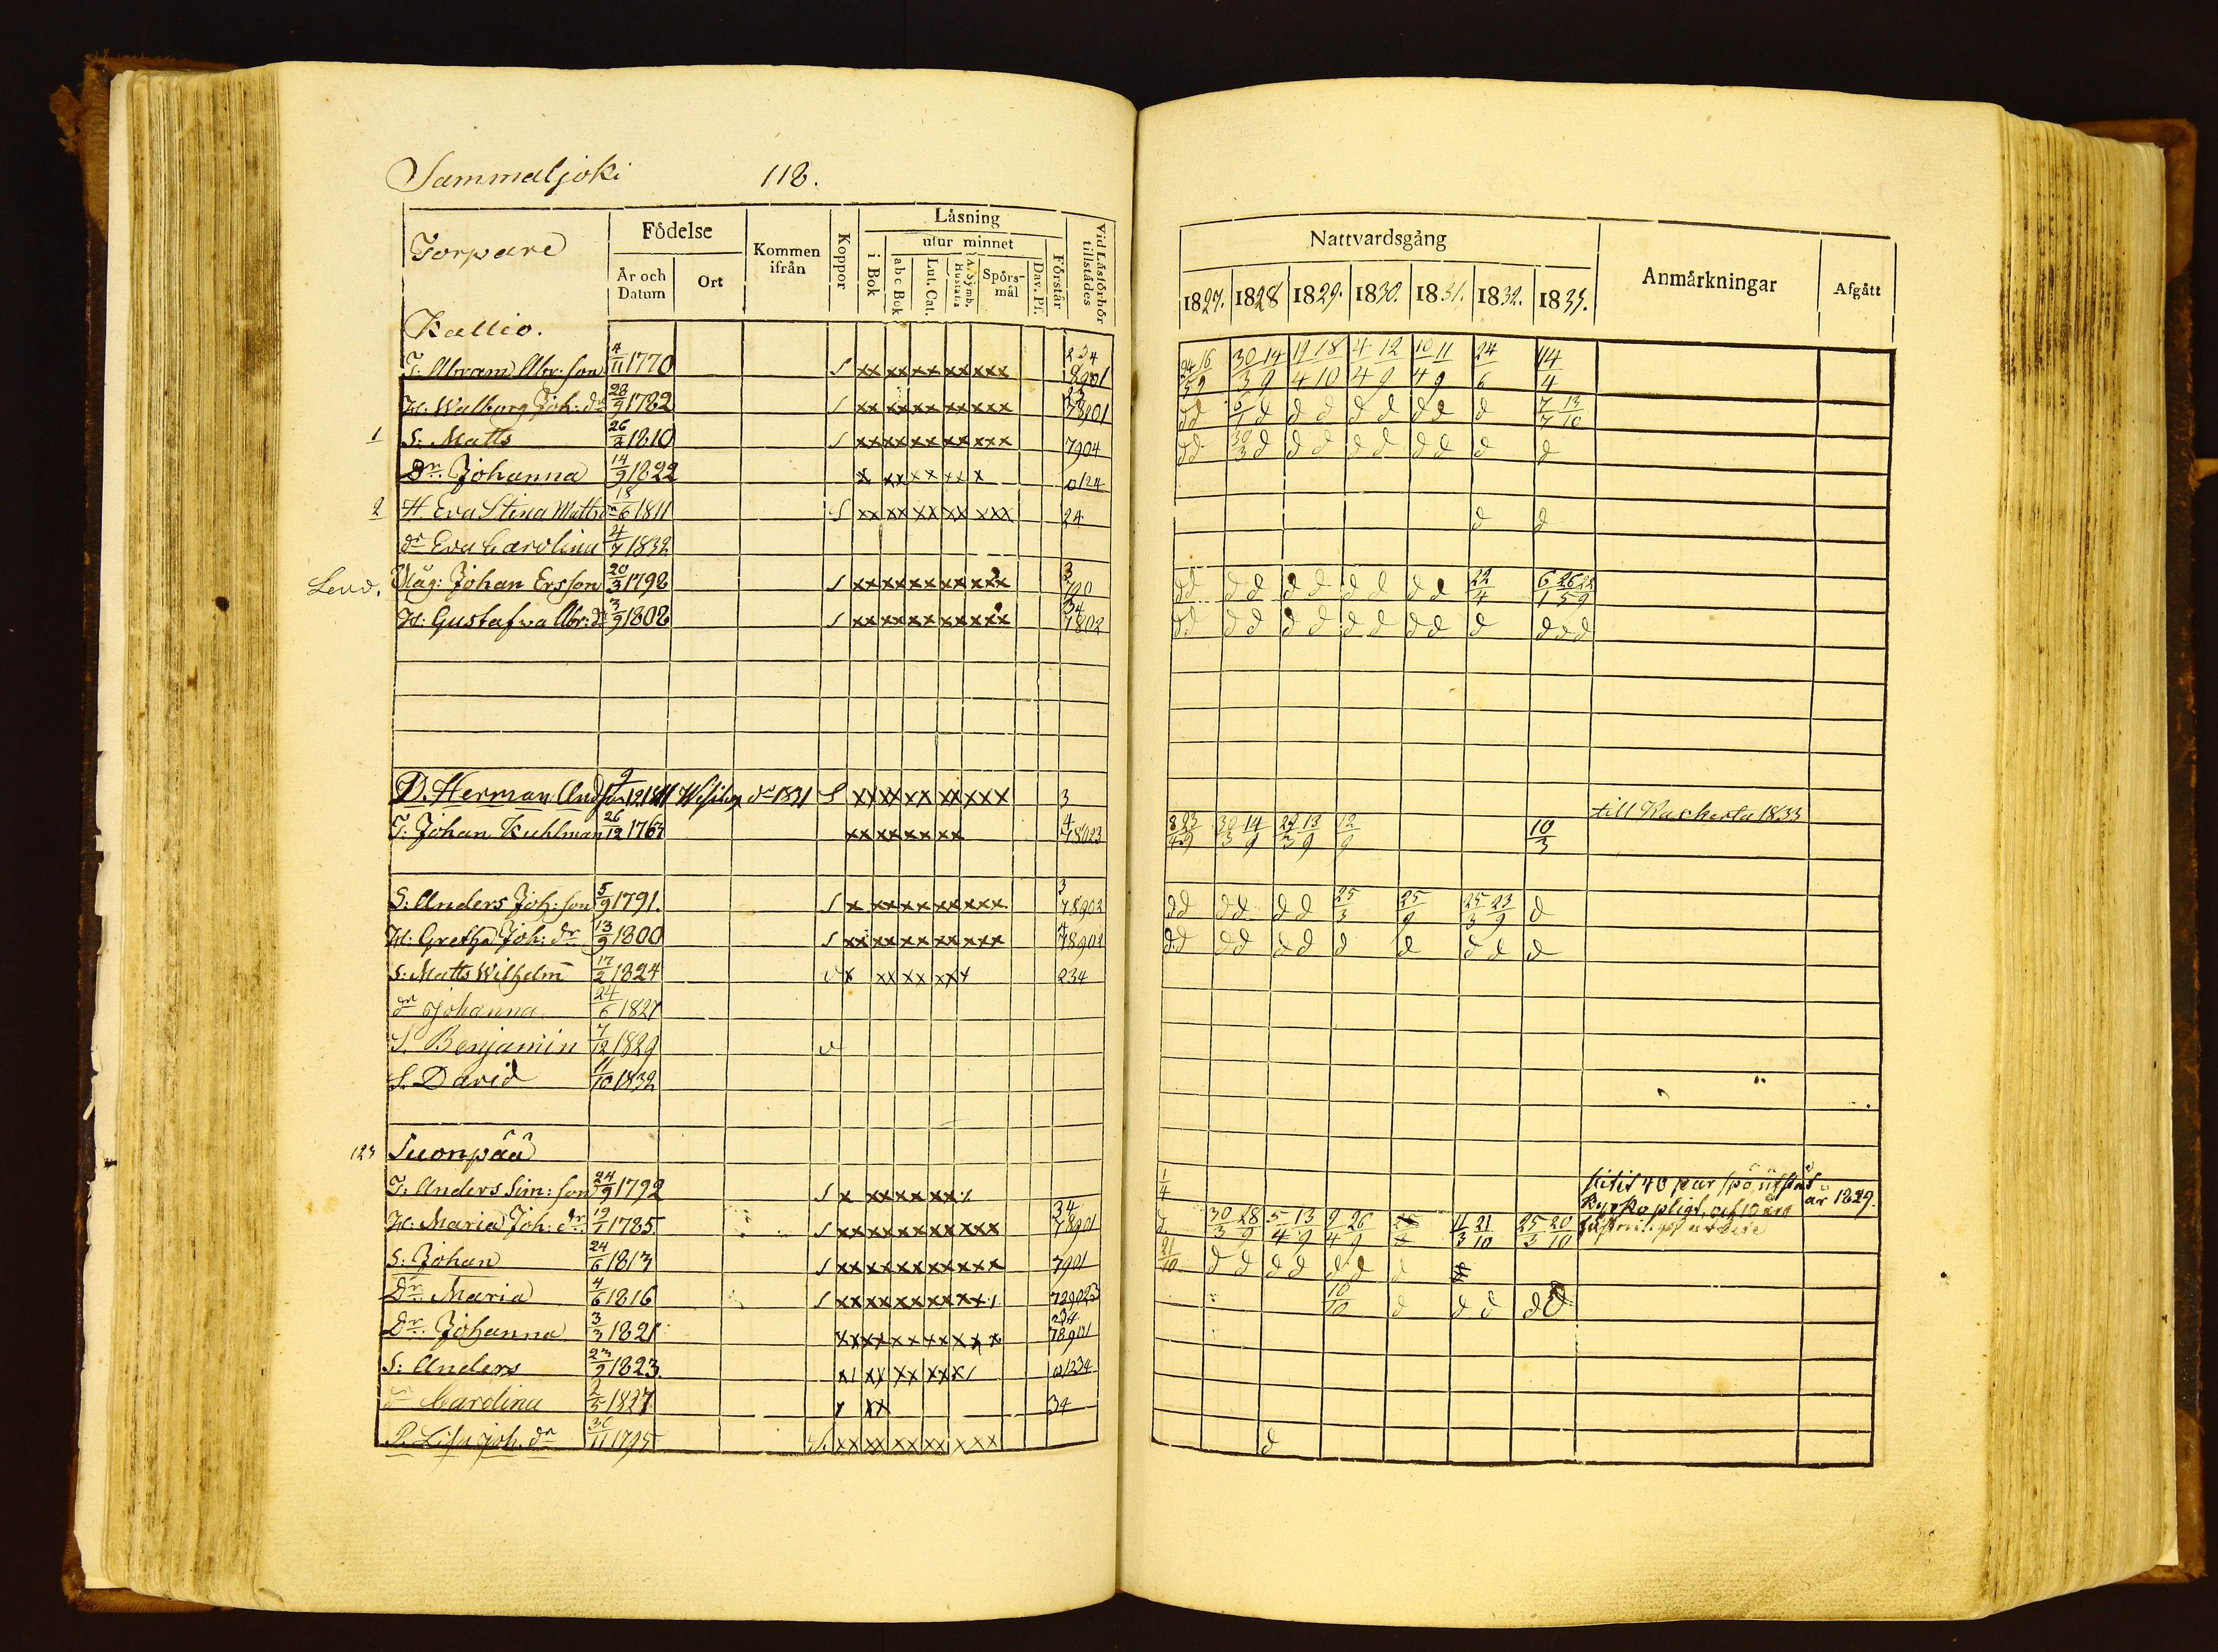 Sammaljoki 118.
Torpare Födelse Kommen ifrån Koppor Läsning Förstår Vid Läsförhör tillstädes
År och Datum Ort i Bok utur minnet a b c Bok Lut. Cat. A. Symb. Hustafla Spörsmål Dav. Ps.
Nattvardsgång Anmärkningar Afgått
1827. 1828 1829. 1830. 1831. 1832. 1833.
Kallio.
T. Abram Abr:son 4/11 1770 S xx xx xx xx xxx 18901 24/5 16/9 30/3 14/9 19/4 18/10 4/4 12/9 10/4 11/9 24/6 14/4
H: Walborg Joh: dr 28/9 1782 S xx xx xx xx xxx 78901 d d 6/1 d d d d d d d d 7/7 13/10
1 S: Matts 26/2 1810 S xx xx xx xx xxx 7904 d d 30/3 d d d d d d d d d
Dr. Johanna 14/9 1822 x xx xx xx x 0124
2 H. Eva Stina Matts dr 18/6 1811 S xx xx xx xx xxx 24 d d
dr Eva Carolina 4/7 1832
Måg: Johan Ersson 20/3 1798 S xx xx xx xx xxx 3 790 d d d d d d d d d d 22/4 6/1 26/5 22/9
H: Gustafva Abr: dr 3/9 1808 S xx xx xx xx xxx 34 7802 d d d d d d d d d d d d d d
D. Herman And 9/12 1811 dn 1831 S xx xx xx xx xxx 3 till 1833
T: Johan Kuhlman 26/12 1767 xx xx xx xx 4 78023 8/4 23/9 30/3 14/9 29/3 13/9 12/9 10/3
S: Anders Joh: son 5/9 1791. S x xx xx xx xxx 3 78902 d d d d d d 25/3 25/9 25/3 23/9 d
H: Gretha Joh: dr 13/9 1800 S xx xx xx xx xxx 78902 d d d d d d d d d d d
S: Matts Wilhelm 17/2 1824 v x xx xx xx x 234
dr Johanna 24/6 1827
S. Benjamin 7/12 1829 v
S. David 11/10 1832
123 Suonpää
T: Anders Sim: son 24/9 1792 S x xx xx xx 1/4 40 par spö
kyrkopligt, år 1829.
H: Maria Joh: dr 19/1 1785 S xx xx xx xx xxx 34 78901 d 30/3 28/9 5/4 13/9 9/4 26/9 11/3 21/10 25/3 20/10
S: Johan 24/6 1813 S xx xx xx xx xxx 7901 21/10 d d d d d d d
Dr. Maria 4/6 1816 S xx xx xx xx xx 10/10 d d d d d
Dr. Johanna 3/3 1821 xx xx xx xx xxx 234 78901
S: Anders 23/9 1823. xx xx xx 01234
dr Carolina 2/5 1827 x xx 34
P. Lisa Joh. dr 30/11 1795 S. xx xx xx xx xxx d